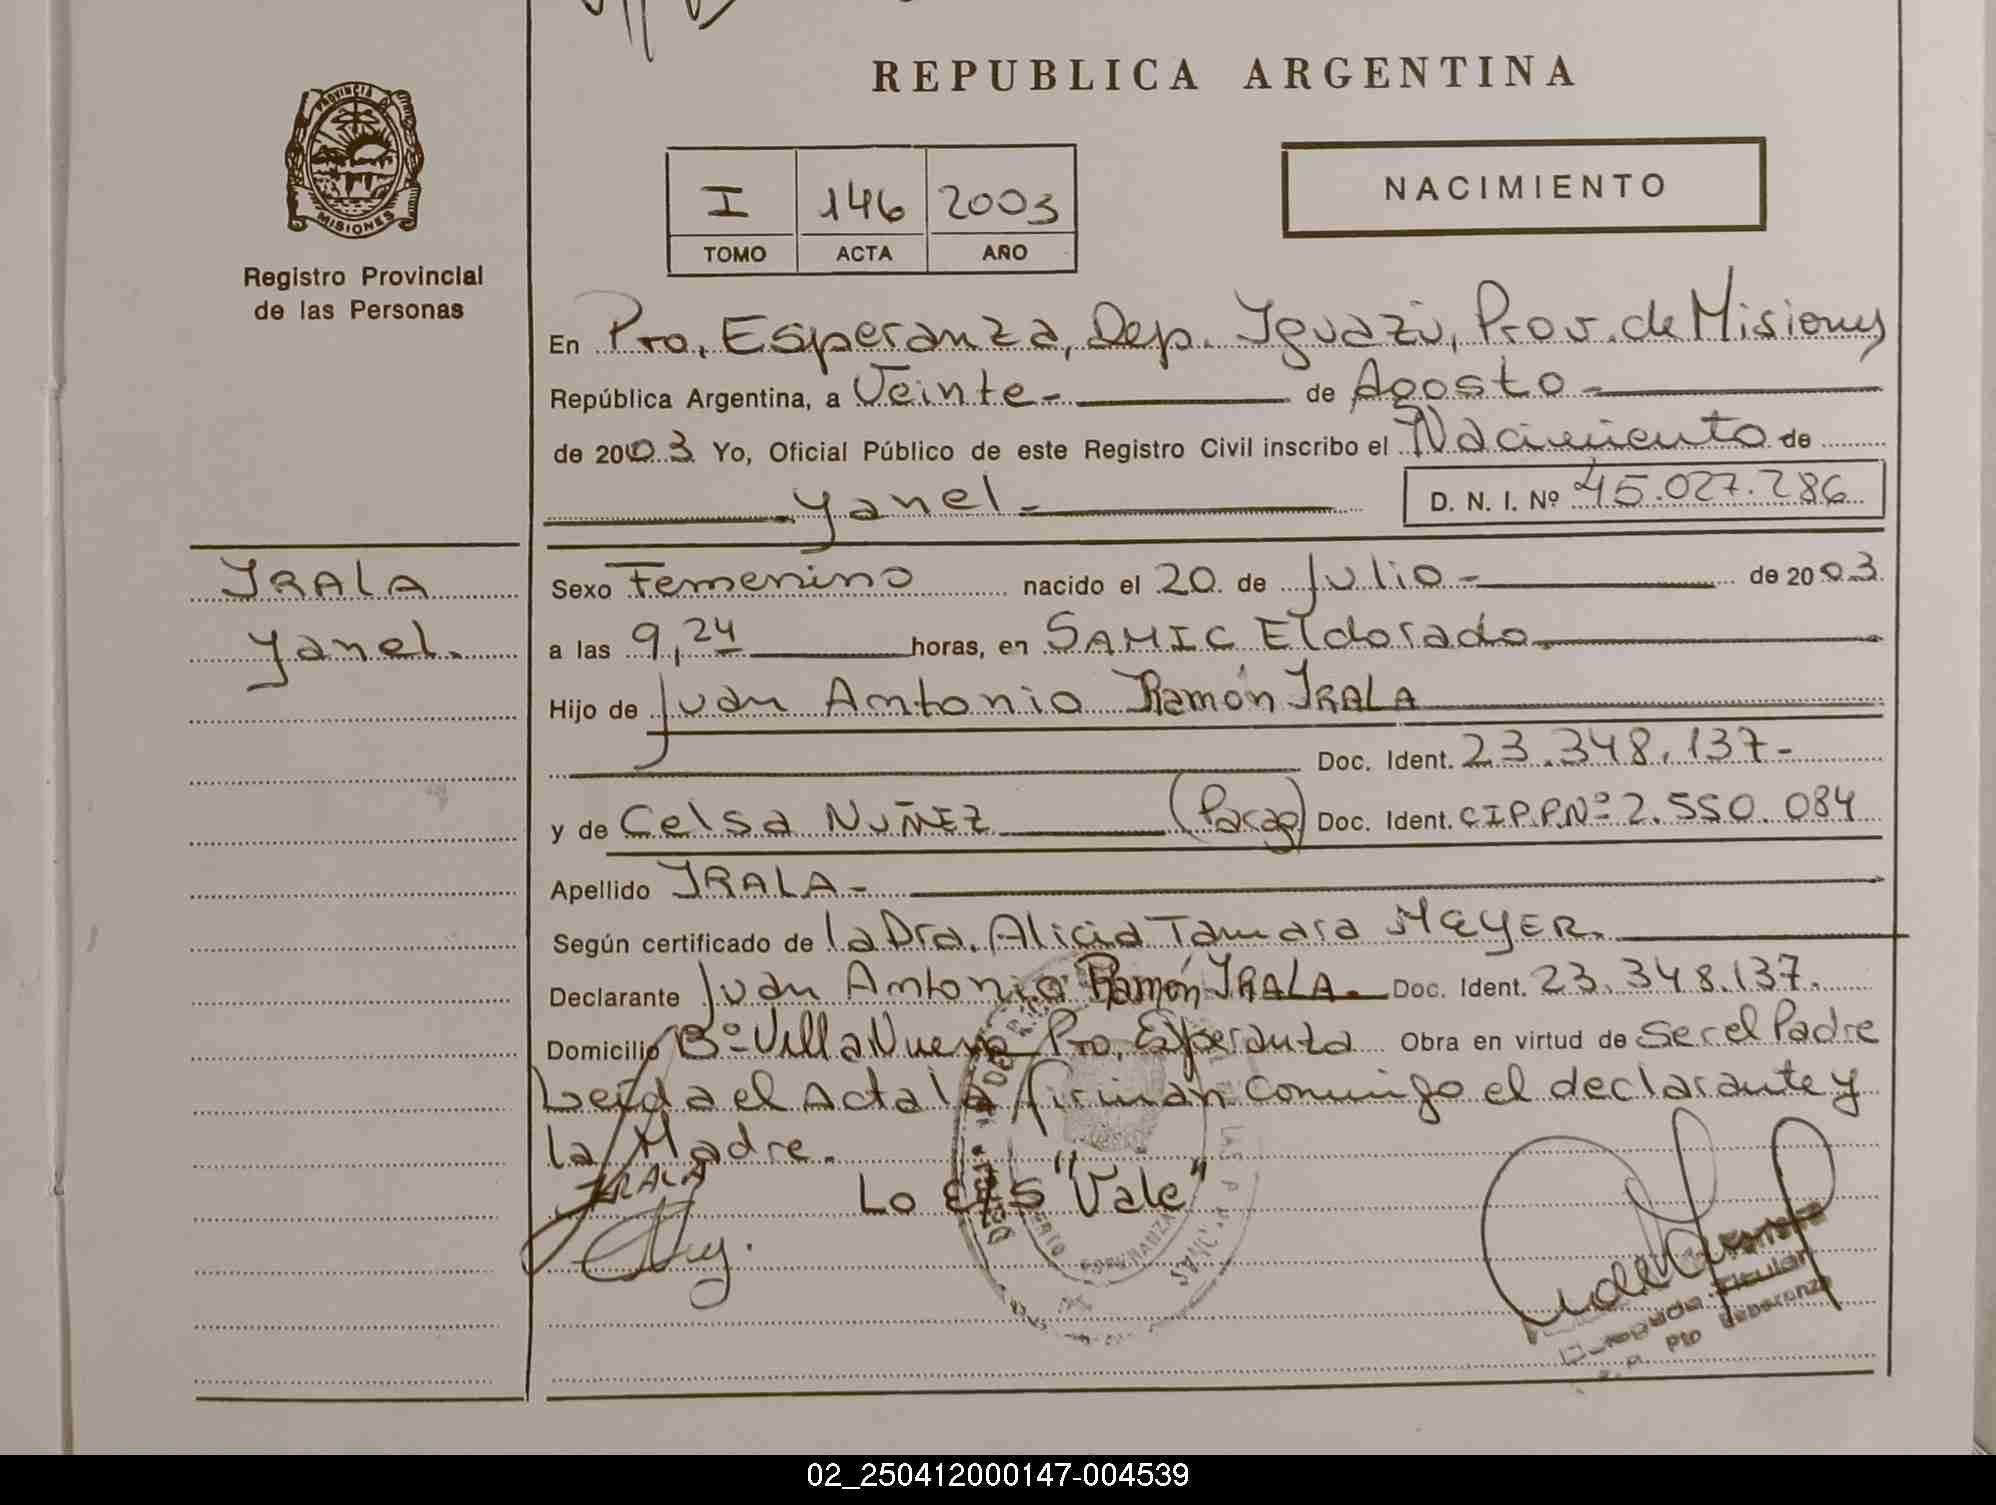 REPUBLICA ARGENTINA
PROVINCIA DE
MISIONES
Registro Provincial
de las Personas
I 146 2003
TOMO ACTA AÑO
NACIMIENTO
En Pto, Esperanza, Dep. Iguazú, Prov. de Misiones
República Argentina, a Veinte- de Agosto-
de 2003 Yo, Oficial Público de este Registro Civil inscribo el Nacimiento de
Yanel- D. N. I. Nº 45.027.286
IRALA
Yanel.
Sexo Femenino nacido el 20 de Julio- de 2003
a las 9,24 horas, en SAMIC Eldorado
Hijo de Juan Antonio Ramón IRALA
Doc. Ident. 23.348.137-
y de Celsa NUÑEZ (Parag) Doc. Ident. C.I.P.P.Nº 2.550.084
Apellido IRALA-
Según certificado de la Dra. Alicia Tamara MEYER.
Declarante Juan Antonio Ramón IRALA. Doc. Ident. 23.348.137.
Domicilio Bº Villa Nueva Pto. Esperanza Obra en virtud de Ser el Padre
Leída el Acta la firman conmigo el declarante y
la Madre.
IRALA
Lo e/s "Vale"
Titular
Pto Esperanza
02_250412000147-004539